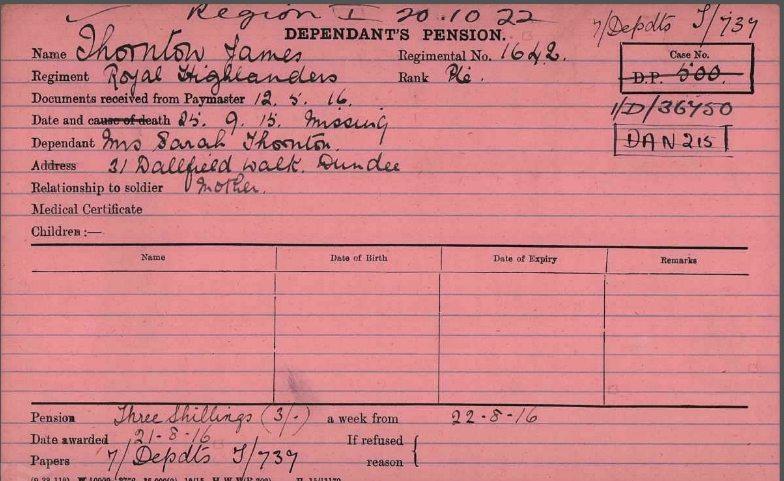 Region I 20.10.22
7/Depdts T/739
DEPENDANT'S PENSION.
Name Thornton James Regimental No. 1642.
Case No.
Regiment Royal Highlanders Rank Pte.
D.P. 600.
Documents received from Paymaster 12. 5. 16.
1/D/36750
Date and cause of death 25. 9. 15. Missing
DAN 215
Dependant Mrs Sarah Thornton.
Address 31 Dallfield Walk. Dundee
Relationship to soldier Mother.
Medical Certificate
Children :—
Name Date of Birth Date of Expiry Remarks
Pension Three Shillings (3/-) a week from 22-8-16
Date awarded 21-8-16 If refused
Papers 7/Depdts T/739 reason {